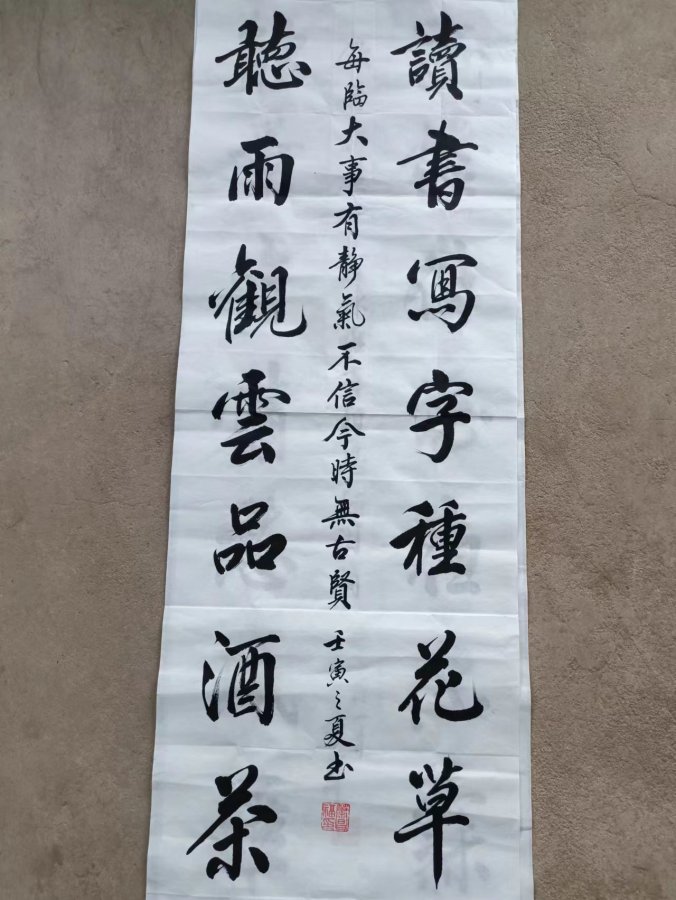 讀書寫字種花草
每臨大事有靜氣不信今時無古賢 壬寅之夏书
聽雨觀雲品酒茶